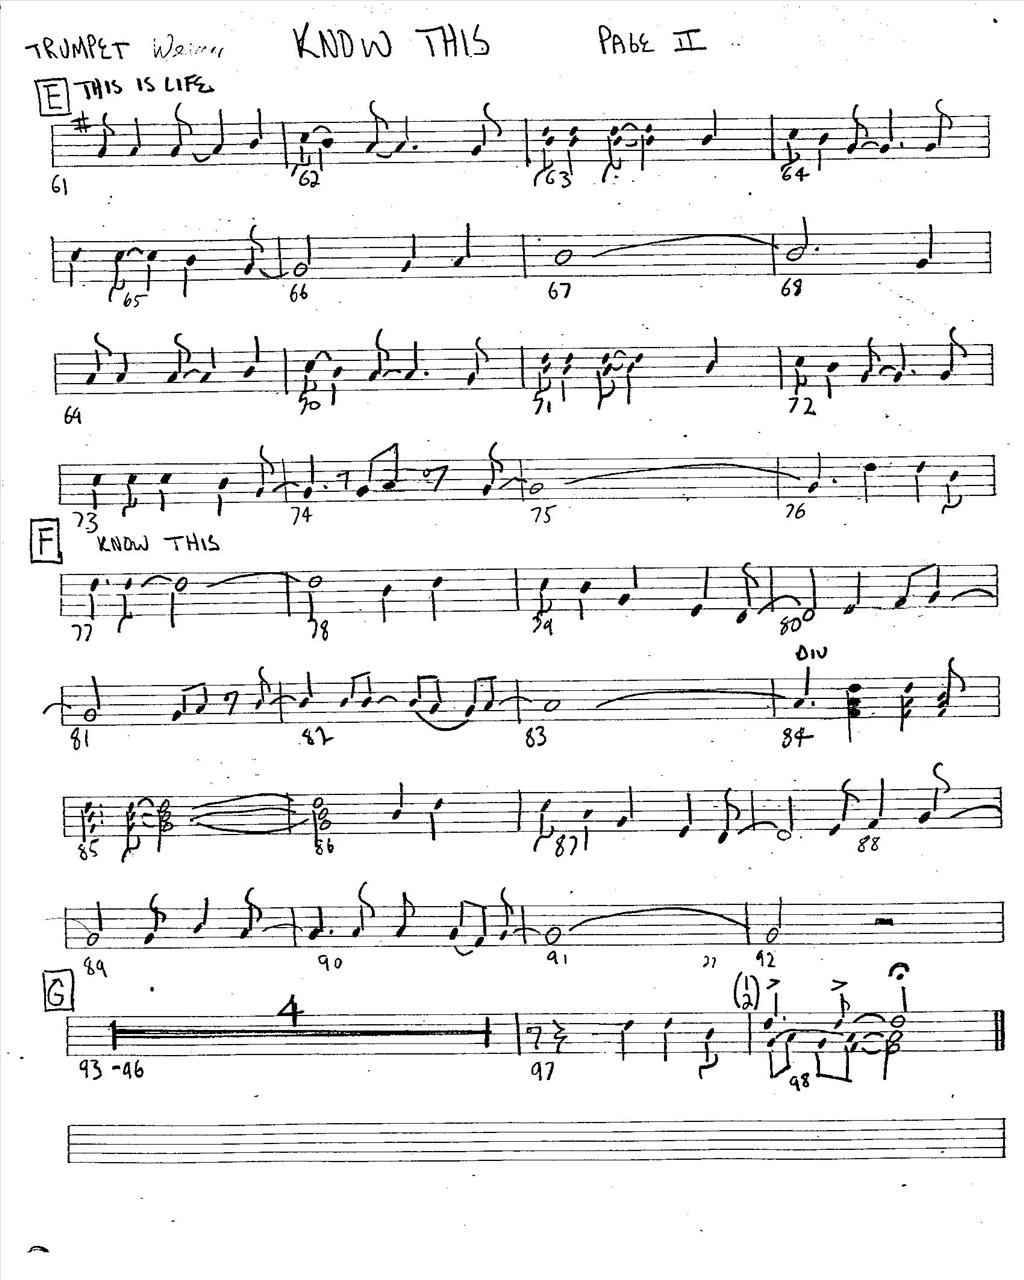 TRUMPET KNOW THIS PAGE II
E THIS IS LIFE
61 62 63 64
65 66 67 68
69 70 71 72
73 74 75 76
F KNOW THIS
77 78 79 80
DIV
81 82 83 84
85 86 87 88
89 90 91 92
G 4 (1 2)
93-96 97 98